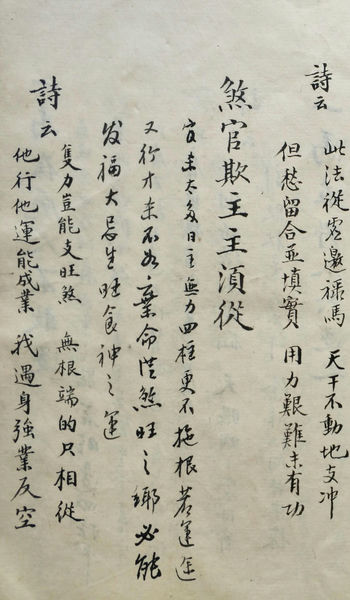 詩云
此法從虛邀禄馬 天干不動地支冲
但愁留合並填實 用力艱難未有功
煞官欺主主須從
官来太多日主無力四柱更不拖根若運途
又行才来不如棄命從煞旺之鄉必能
发福大忌生旺食神之運
詩云
隻力豈能支旺煞 無根端的只相從
他行他運能成業 我遇身強業反空